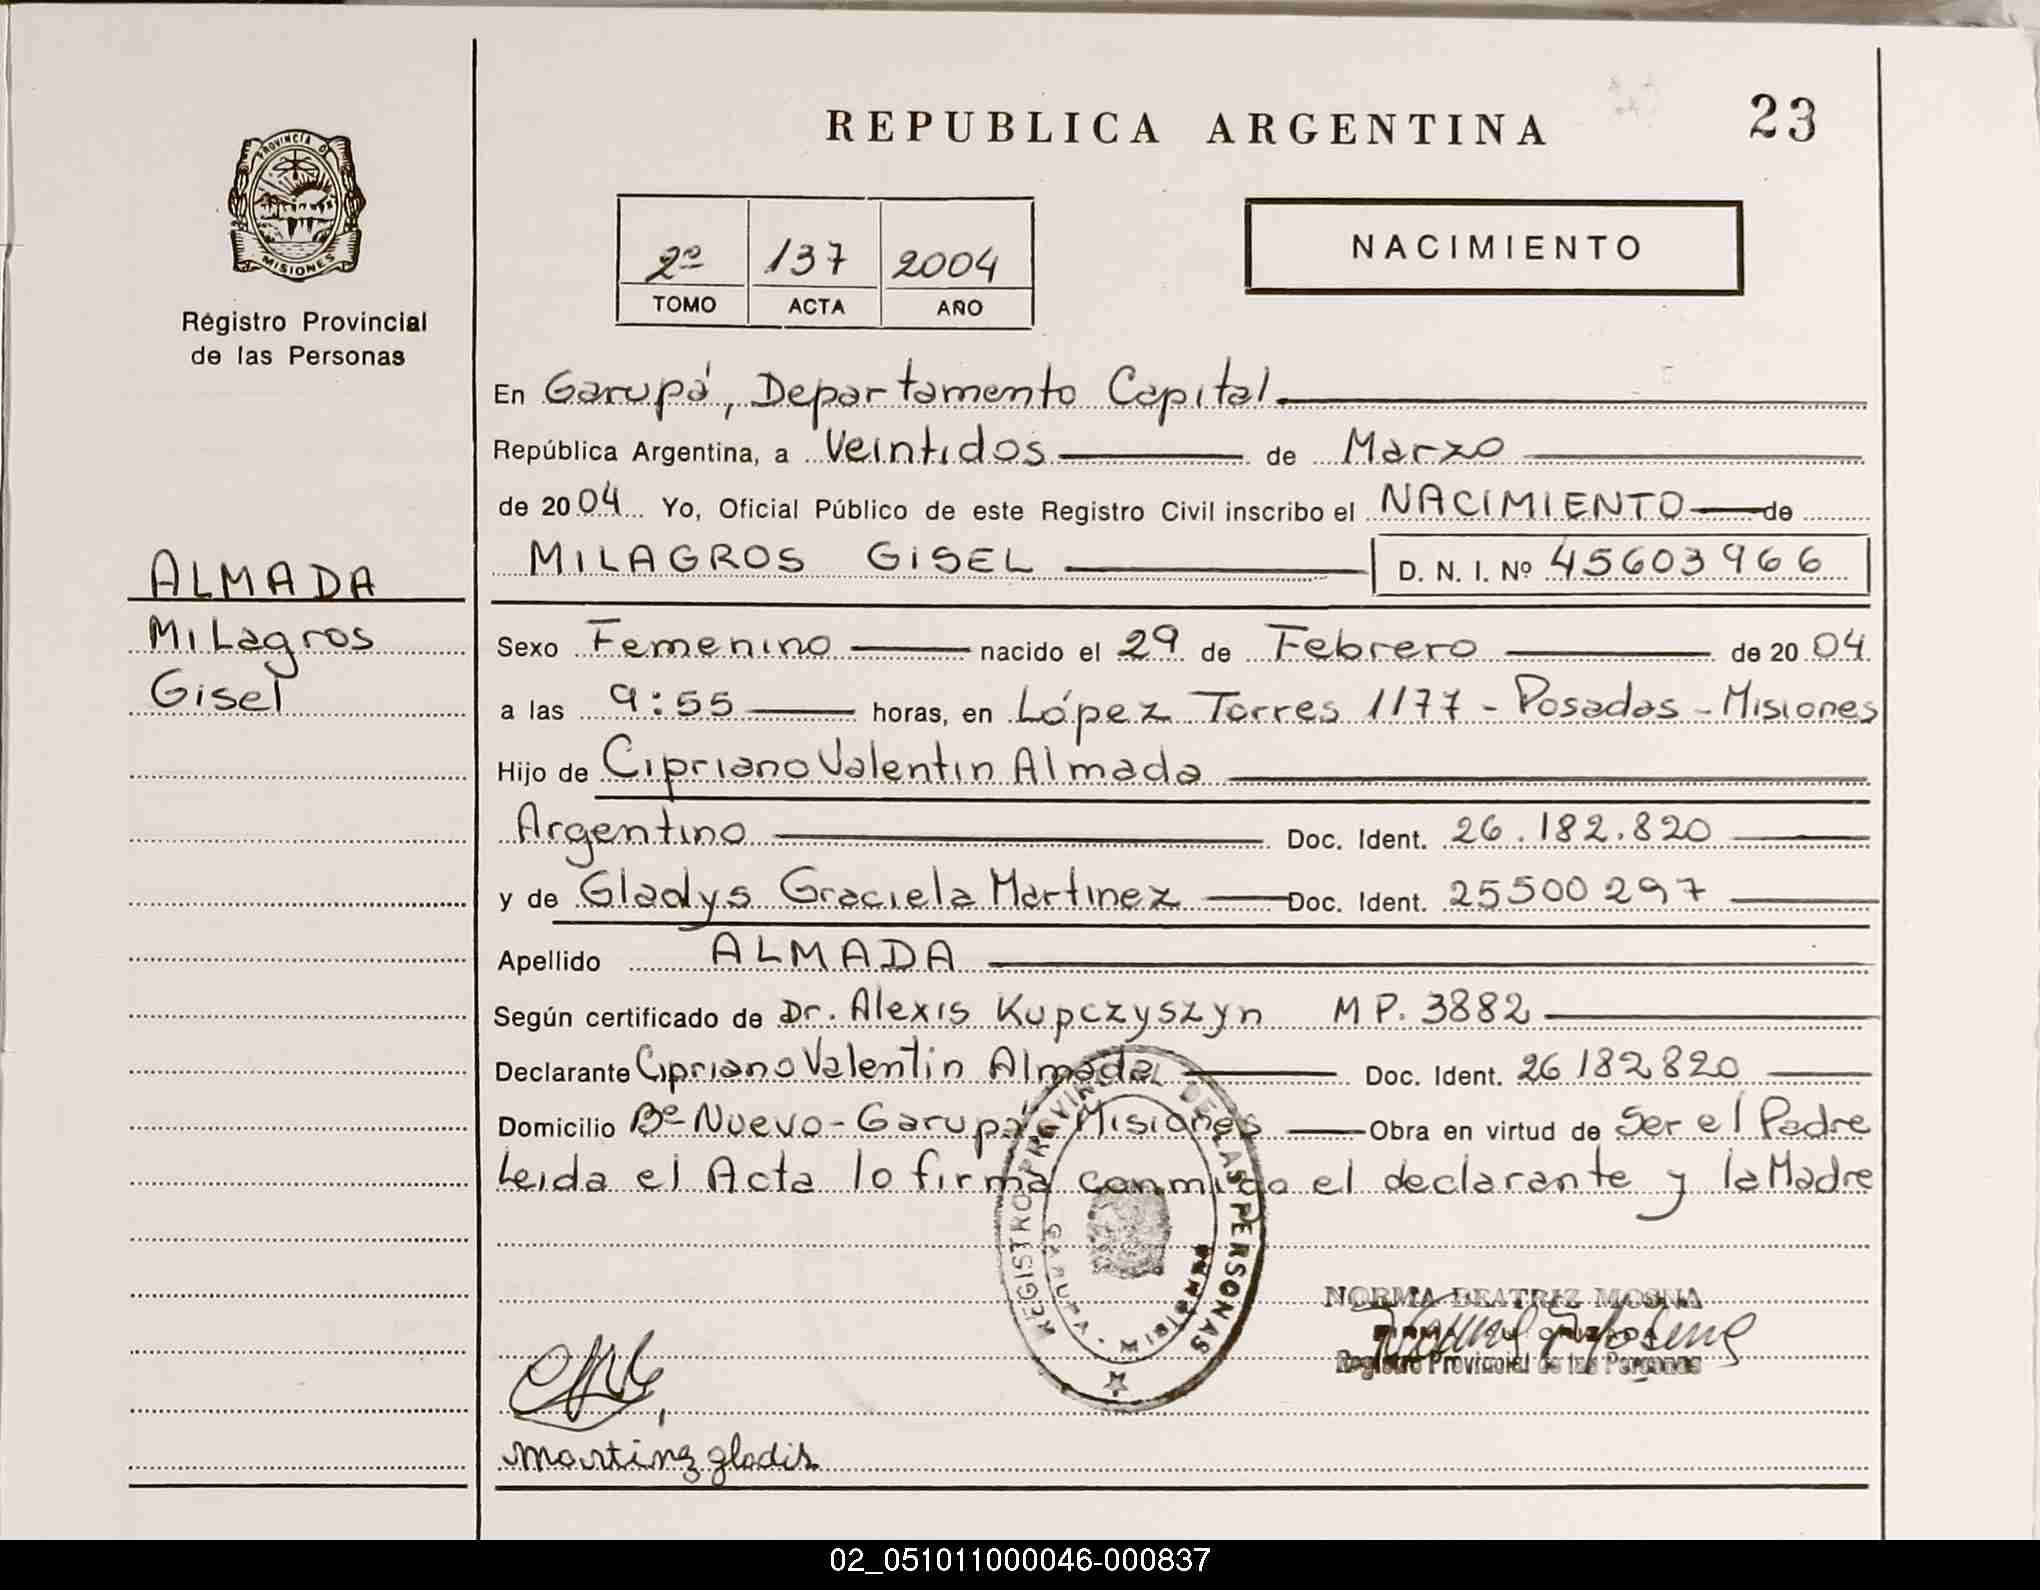 REPUBLICA ARGENTINA
23
PROVINCIA D
MISIONES
Registro Provincial
de las Personas
2º 137 2004
TOMO ACTA AÑO
NACIMIENTO
En Garupá, Departamento Capital
República Argentina, a Veintidos de Marzo
de 2004 Yo, Oficial Público de este Registro Civil inscribo el NACIMIENTO de
MILAGROS GISEL D. N. I. Nº 45603966
ALMADA
Milagros
Gisel
Sexo Femenino nacido el 29 de Febrero de 2004
a las 9:55 horas, en López Torres 1177 - Posadas - Misiones
Hijo de Cipriano Valentin Almada
Argentino Doc. Ident. 26.182.820
y de Gladys Graciela Martinez Doc. Ident. 25500297
Apellido ALMADA
Según certificado de Dr. Alexis Kupczyszyn MP. 3882
Declarante Cipriano Valentin Almada Doc. Ident. 26182820
Domicilio Bº Nuevo - Garupá - Misiones Obra en virtud de Ser el Padre
Leida el Acta lo firma conmigo el declarante y la Madre
REGISTRO PROVINCIAL DE LAS PERSONAS
GARUPA
NORMA BEATRIZ MOSNA
Registro Provincial de las Personas
martinz gladis
02_051011000046-000837